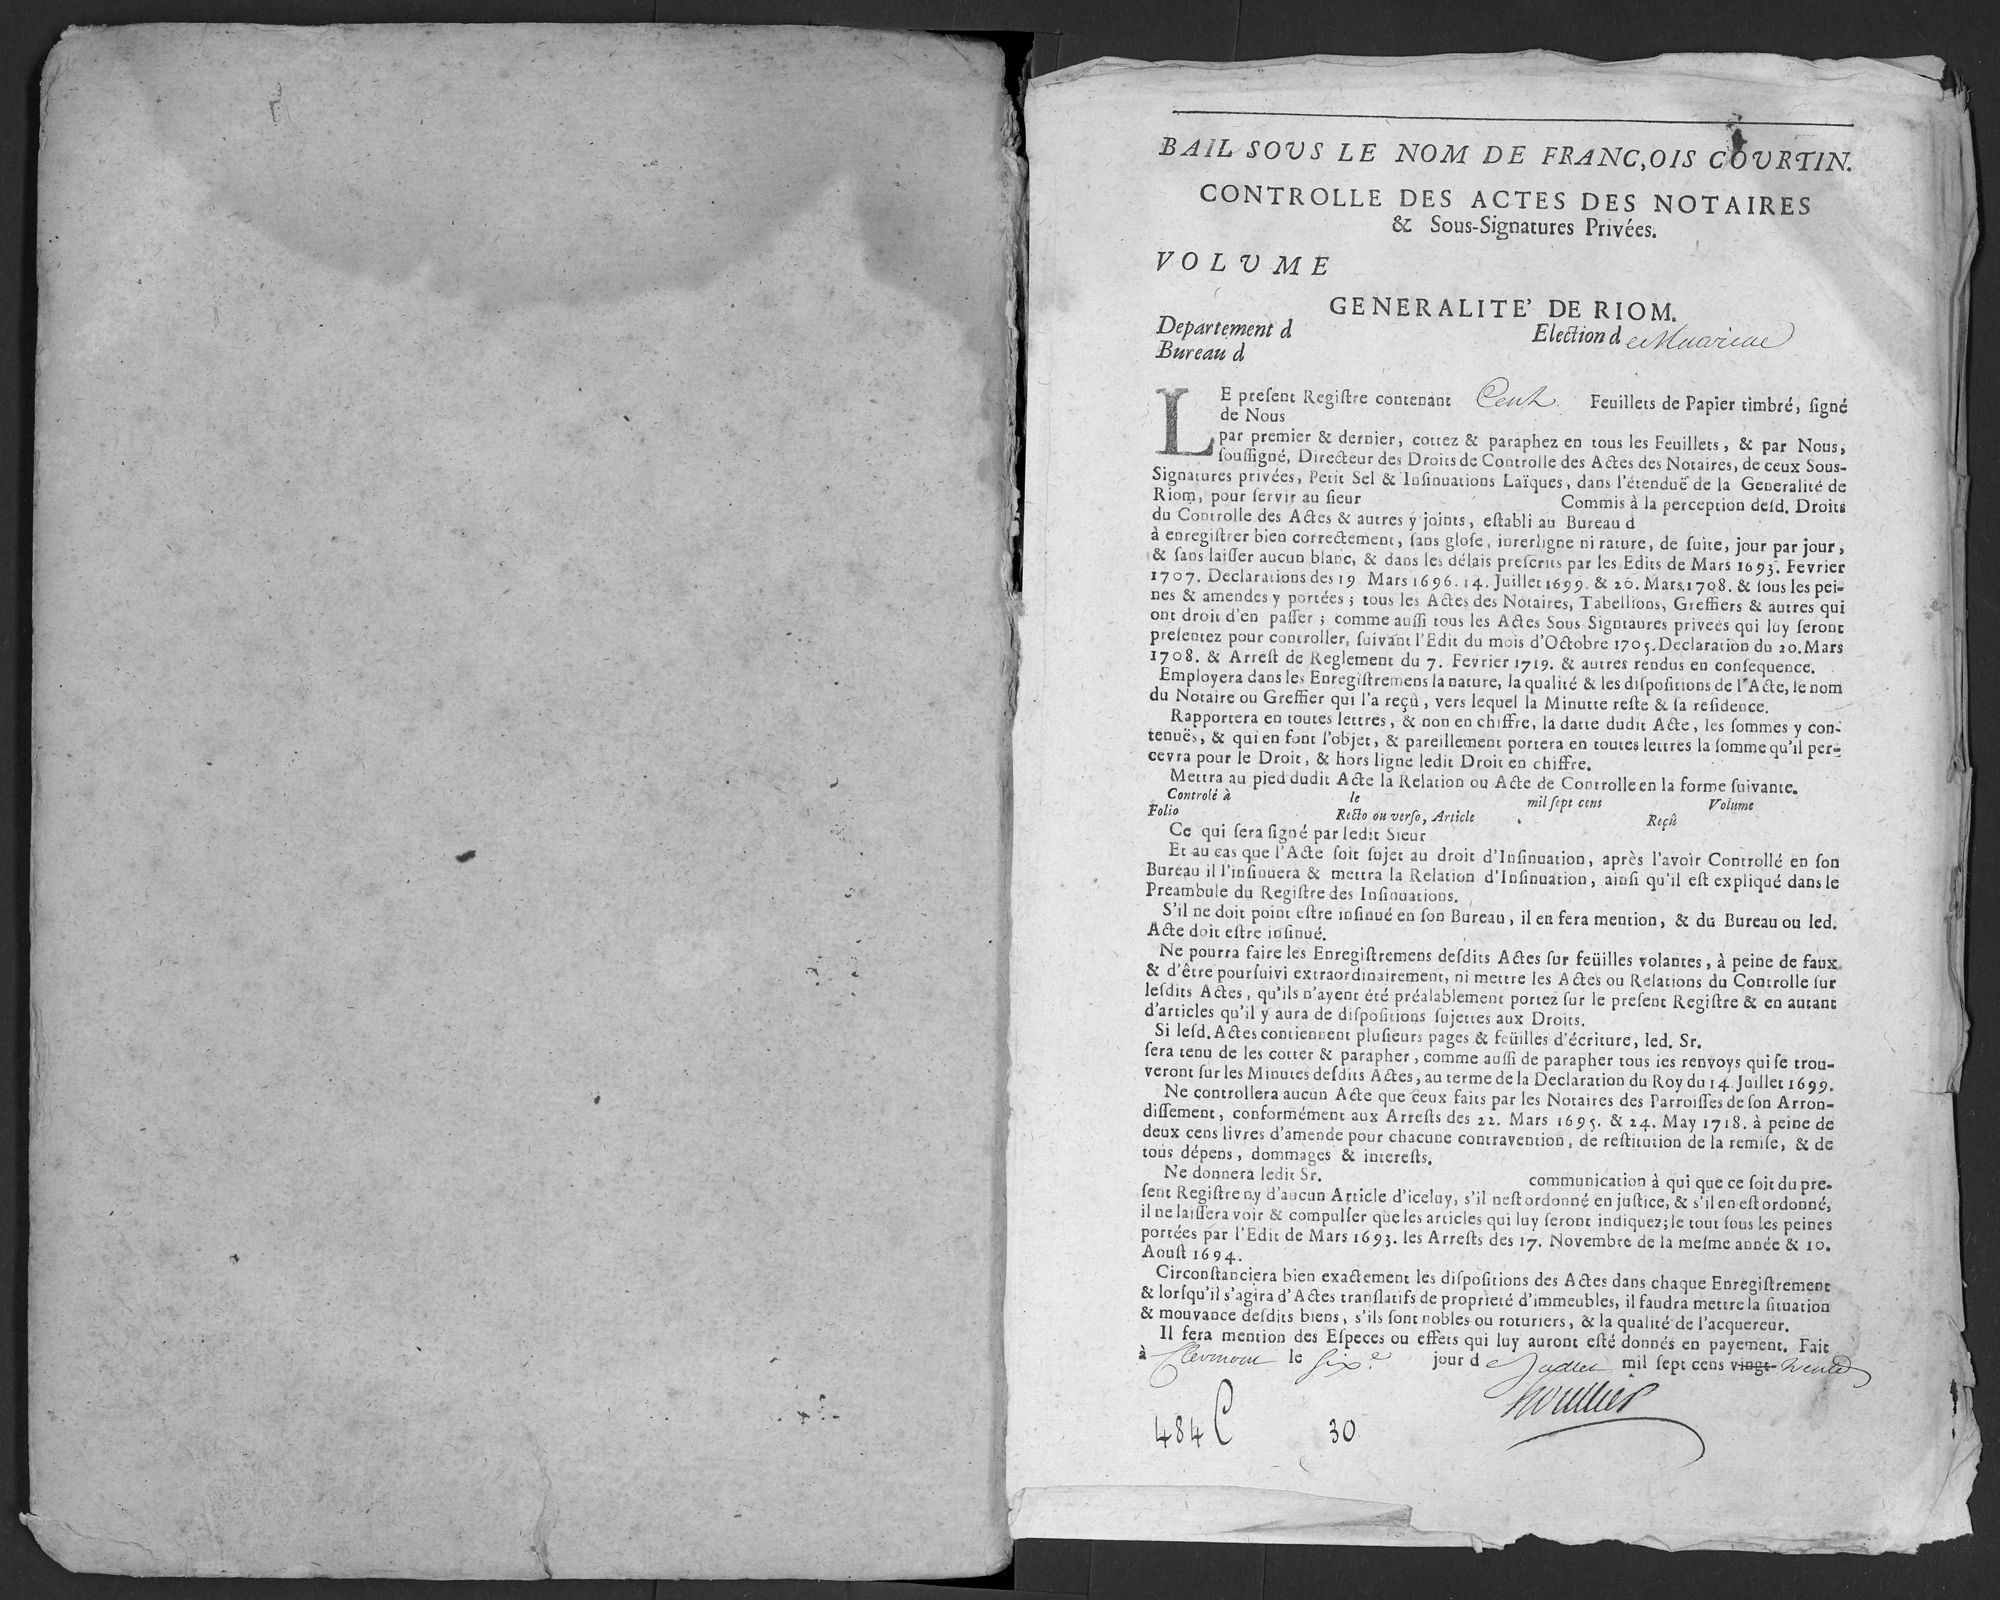 BAIL SOUS LE NOM DE FRANC,OIS COURTIN.
CONTROLLE DES ACTES DES NOTAIRES
& Sous-Signatures Privées.
VOLUME
GENERALITE' DE RIOM.
Departement d Election d e Mauriac
Bureau d
LE preſent Regiſtre contenant Cent Feuillets de Papier timbré, ſigné
de Nous
par premier & dernier, cottez & paraphez en tous les Feuillets, & par Nous,
ſouſſigné, Directeur des Droits de Controlle des Actes des Notaires, de ceux Sous-
Signatures privées, Petit Sel & Inſinuations Laïques, dans l'étenduë de la Generalité de
Riom, pour ſervir au ſieur Commis à la perception deſd. Droits
du Controlle des Actes & autres y joints, eſtabli au Bureau d
à enregiſtrer bien correctement, ſans gloſe, interligne ni rature, de ſuite, jour par jour,
& ſans laiſſer aucun blanc, & dans les délais preſcrits par les Edits de Mars 1693. Fevrier
1707. Declarations des 19 Mars 1696. 14. Juillet 1699. & 20. Mars 1708. & ſous les pei-
nes & amendes y portées; tous les Actes des Notaires, Tabellions, Greffiers & autres qui
ont droit d'en paſſer; comme auſſi tous les Actes Sous Signtaures privées qui luy ſeront
preſentez pour controller, ſuivant l'Edit du mois d'Octobre 1705. Declaration du 20. Mars
1708. & Arreſt de Reglement du 7. Fevrier 1719. & autres rendus en conſequence.
Employera dans les Enregiſtremens la nature, la qualité & les diſpoſitions de l'Acte, le nom
du Notaire ou Greffier qui l'a reçû, vers lequel la Minutte reſte & ſa reſidence.
Rapportera en toutes lettres, & non en chiffre, la datte dudit Acte, les ſommes y con-
tenuës, & qui en font l'objet, & pareillement portera en toutes lettres la ſomme qu'il per-
cevra pour le Droit, & hors ligne ledit Droit en chiffre.
Mettra au pied dudit Acte la Relation ou Acte de Controlle en la forme ſuivante.
Controlé à le mil ſept cens Volume
Folio Recto ou verſo, Article Reçû
Ce qui ſera ſigné par ledit Sieur
Et au cas que l'Acte ſoit ſujet au droit d'Inſinuation, après l'avoir Controllé en ſon
Bureau il l'inſinuera & mettra la Relation d'Inſinuation, ainſi qu'il eſt expliqué dans le
Preambule du Regiſtre des Inſinuations.
S'il ne doit point eſtre inſinué en ſon Bureau, il en fera mention, & du Bureau ou led.
Acte doit eſtre inſinué.
Ne pourra faire les Enregiſtremens deſdits Actes ſur feüilles volantes, à peine de faux
& d'être pourſuivi extraordinairement, ni mettre les Actes ou Relations du Controlle ſur
leſdits Actes, qu'ils n'ayent été préalablement portez ſur le preſent Regiſtre & en autant
d'articles qu'il y aura de diſpoſitions ſujettes aux Droits.
Si leſd. Actes contiennent pluſieurs pages & feüilles d'écriture, led. Sr.
ſera tenu de les cotter & parapher, comme auſſi de parapher tous les renvoys qui ſe trou-
veront ſur les Minutes deſdits Actes, au terme de la Declaration du Roy du 14 Juillet 1699.
Ne controllera aucun Acte que ceux faits par les Notaires des Parroiſſes de ſon Arron-
diſſement, conformément aux Arreſts des 22. Mars 1695. & 24. May 1718. à peine de
deux cens livres d'amende pour chacune contravention, de reſtitution de la remiſe, & de
tous dépens, dommages & intereſts.
Ne donnera ledit Sr. communication à qui que ce ſoit du pre-
ſent Regiſtre ny d'aucun Article d'iceluy, s'il n'eſt ordonné en juſtice, & s'il en eſt ordonné,
il ne laiſſera voir & compulſer que les articles qui luy ſeront indiquez; le tout ſous les peines
portées par l'Edit de Mars 1693. les Arreſts des 17. Novembre de la meſme année & 10.
Aouſt 1694.
Circonſtanciera bien exactement les diſpoſitions des Actes dans chaque Enregiſtrement
& lorſqu'il s'agira d'Actes tranſlatifs de proprieté d'immeubles, il faudra mettre la ſituation
& mouvance deſdits biens, s'ils ſont nobles ou roturiers, & la qualité de l'acquereur.
Il fera mention des Eſpeces ou effets qui luy auront eſté donnés en payement. Fait
à Clermont le Six.e jour d e Juillet mil ſept cens vingt trente
484 C 30